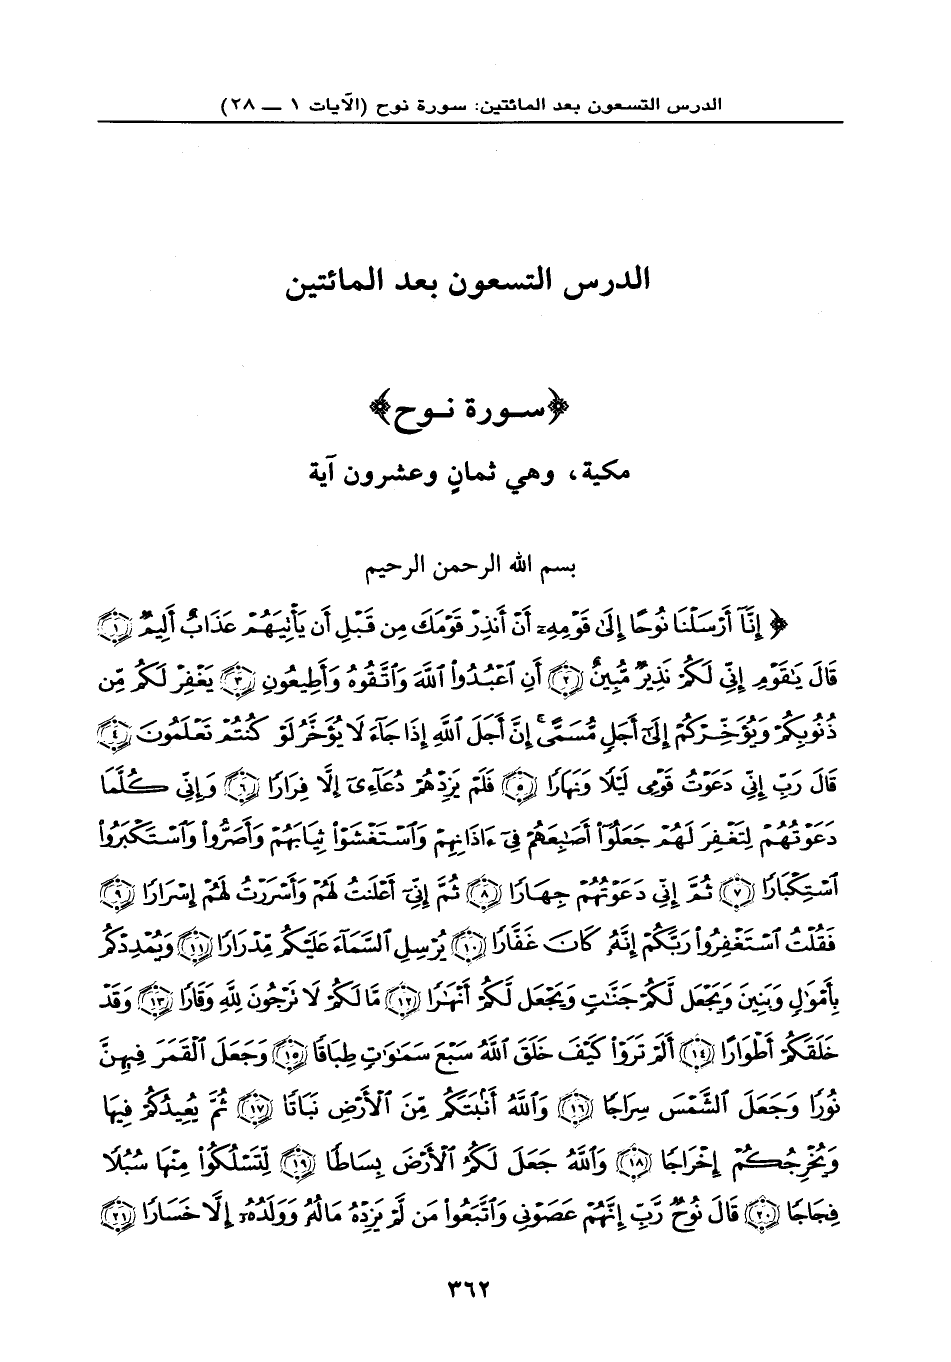 الدرس التسعون بعد المائتين: سورة نوح (الآيات ١ — ٢٨)
الدرس التسعون بعد المائتين
﴿سورة نوح﴾
مكية، وهي ثمانٍ وعشرون آية
بسم الله الرحمن الرحيم
﴿ إِنَّآ أَرْسَلْنَا نُوحًا إِلَىٰ قَوْمِهِۦٓ أَنْ أَنذِرْ قَوْمَكَ مِن قَبْلِ أَن يَأْتِيَهُمْ عَذَابٌ أَلِيمٌ ۝١
قَالَ يَٰقَوْمِ إِنِّى لَكُمْ نَذِيرٌ مُّبِينٌ ۝٢ أَنِ ٱعْبُدُوا۟ ٱللَّهَ وَٱتَّقُوهُ وَأَطِيعُونِ ۝٣ يَغْفِرْ لَكُم مِّن
ذُنُوبِكُمْ وَيُؤَخِّرْكُمْ إِلَىٰٓ أَجَلٍ مُّسَمًّى ۚ إِنَّ أَجَلَ ٱللَّهِ إِذَا جَآءَ لَا يُؤَخَّرُ لَوْ كُنتُمْ تَعْلَمُونَ ۝٤
قَالَ رَبِّ إِنِّى دَعَوْتُ قَوْمِى لَيْلًا وَنَهَارًا ۝٥ فَلَمْ يَزِدْهُمْ دُعَآءِىٓ إِلَّا فِرَارًا ۝٦ وَإِنِّى كُلَّمَا
دَعَوْتُهُمْ لِتَغْفِرَ لَهُمْ جَعَلُوٓا۟ أَصَٰبِعَهُمْ فِىٓ ءَاذَانِهِمْ وَٱسْتَغْشَوْا۟ ثِيَابَهُمْ وَأَصَرُّوا۟ وَٱسْتَكْبَرُوا۟
ٱسْتِكْبَارًا ۝٧ ثُمَّ إِنِّى دَعَوْتُهُمْ جِهَارًا ۝٨ ثُمَّ إِنِّىٓ أَعْلَنتُ لَهُمْ وَأَسْرَرْتُ لَهُمْ إِسْرَارًا ۝٩
فَقُلْتُ ٱسْتَغْفِرُوا۟ رَبَّكُمْ إِنَّهُۥ كَانَ غَفَّارًا ۝١٠ يُرْسِلِ ٱلسَّمَآءَ عَلَيْكُم مِّدْرَارًا ۝١١ وَيُمْدِدْكُم
بِأَمْوَٰلٍ وَبَنِينَ وَيَجْعَل لَّكُمْ جَنَّٰتٍ وَيَجْعَل لَّكُمْ أَنْهَٰرًا ۝١٢ مَّا لَكُمْ لَا تَرْجُونَ لِلَّهِ وَقَارًا ۝١٣ وَقَدْ
خَلَقَكُمْ أَطْوَارًا ۝١٤ أَلَمْ تَرَوْا۟ كَيْفَ خَلَقَ ٱللَّهُ سَبْعَ سَمَٰوَٰتٍ طِبَاقًا ۝١٥ وَجَعَلَ ٱلْقَمَرَ فِيهِنَّ
نُورًا وَجَعَلَ ٱلشَّمْسَ سِرَاجًا ۝١٦ وَٱللَّهُ أَنۢبَتَكُم مِّنَ ٱلْأَرْضِ نَبَاتًا ۝١٧ ثُمَّ يُعِيدُكُمْ فِيهَا
وَيُخْرِجُكُمْ إِخْرَاجًا ۝١٨ وَٱللَّهُ جَعَلَ لَكُمُ ٱلْأَرْضَ بِسَاطًا ۝١٩ لِّتَسْلُكُوا۟ مِنْهَا سُبُلًا
فِجَاجًا ۝٢٠ قَالَ نُوحٌ رَّبِّ إِنَّهُمْ عَصَوْنِى وَٱتَّبَعُوا۟ مَن لَّمْ يَزِدْهُ مَالُهُۥ وَوَلَدُهُۥٓ إِلَّا خَسَارًا ۝٢١
٣٦٢